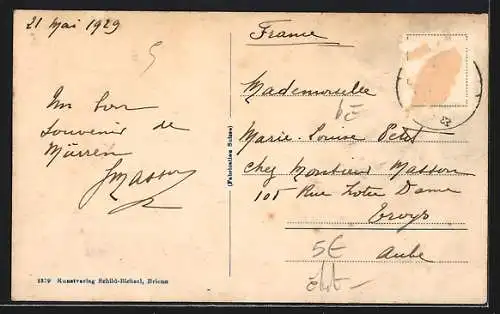 21 Mai 1929
Un bon
souvenir de
Mürren
J Masson
1379 Kunstverlag Schild-Bichsel, Brienz
(Fabrication Suisse)
France
Mademoiselle
Marie-Louise Petit
chez Monsieur Masson
105 Rue Notre Dame
Troyes
Aube
5€